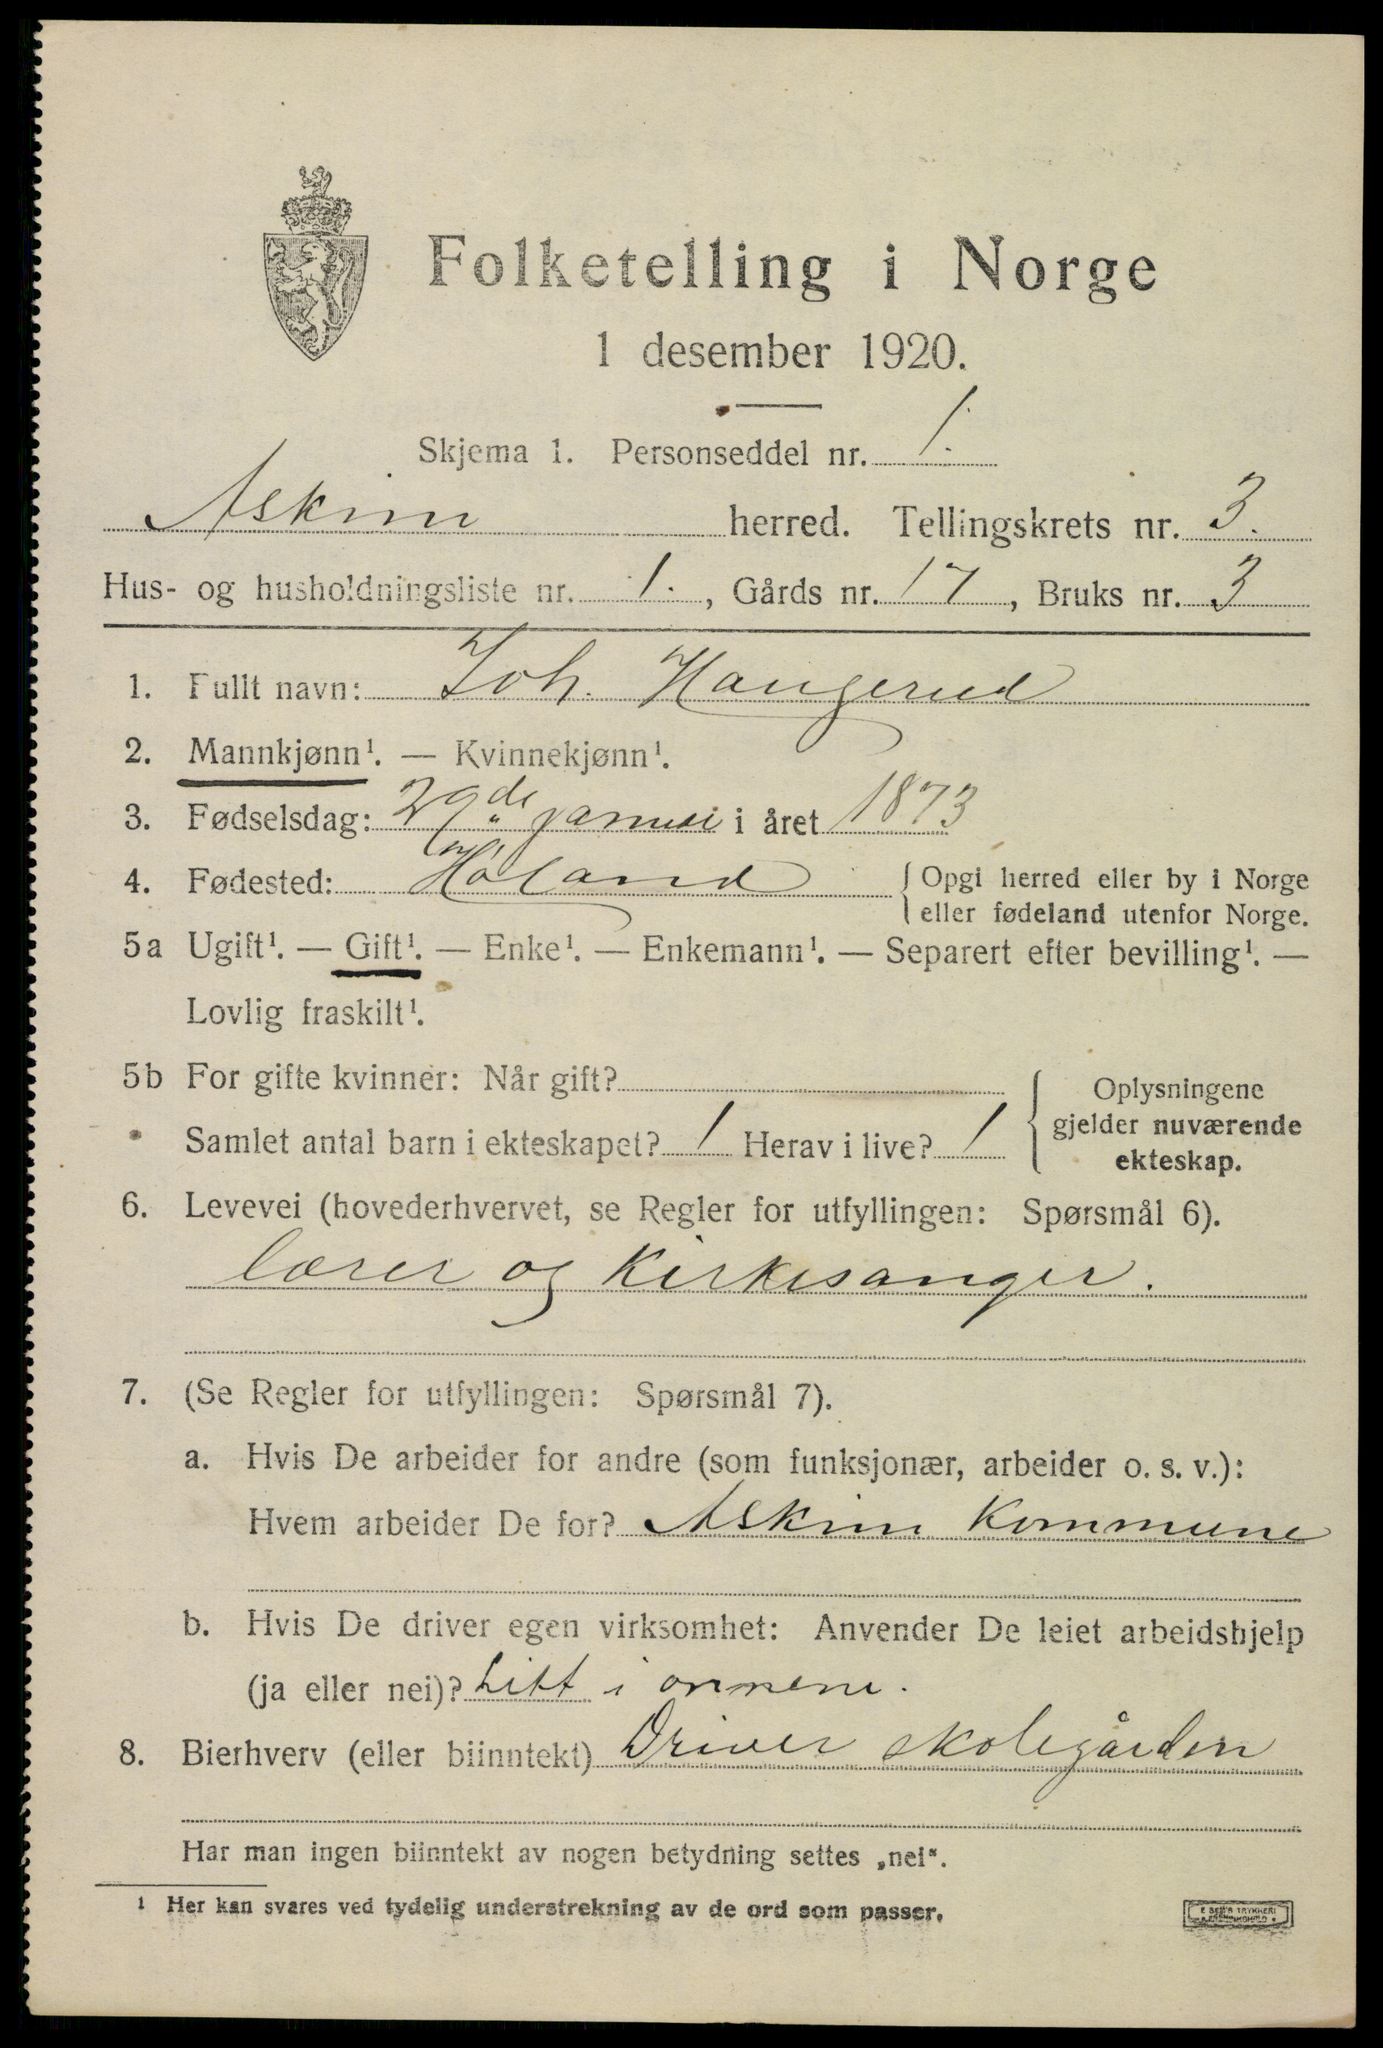 Folketelling i Norge
1 desember 1920.
Skjema 1. Personseddel nr. 1.
Askim herred. Tellingskrets nr. 3.
Hus- og husholdningsliste nr. 1., Gårds nr. 17, Bruks nr. 3
1. Fullt navn: Joh. Haugerud
2. Mannkjønn¹. — Kvinnekjønn¹.
3. Fødselsdag: 29de januar i året 1873
4. Fødested: Høland { Opgi herred eller by i Norge
eller fødeland utenfor Norge.
5a Ugift¹. — Gift¹. — Enke¹. — Enkemann¹. — Separert efter bevilling¹. —
Lovlig fraskilt¹.
5b For gifte kvinner: Når gift?
Samlet antal barn i ekteskapet? 1 Herav i live? 1
Oplysningene
gjelder nuværende
ekteskap.
6. Levevei (hovederhvervet, se Regler for utfyllingen: Spørsmål 6).
lærer og Kirkesanger.
7. (Se Regler for utfyllingen: Spørsmål 7).
a. Hvis De arbeider for andre (som funksjonær, arbeider o. s. v.):
Hvem arbeider De for? Askim Kommune
b. Hvis De driver egen virksomhet: Anvender De leiet arbeidshjelp
(ja eller nei)? Litt i onnene.
8. Bierhverv (eller biinntekt) Driver skolegården
Har man ingen biinntekt av nogen betydning settes „nei“.
¹ Her kan svares ved tydelig understrekning av de ord som passer.